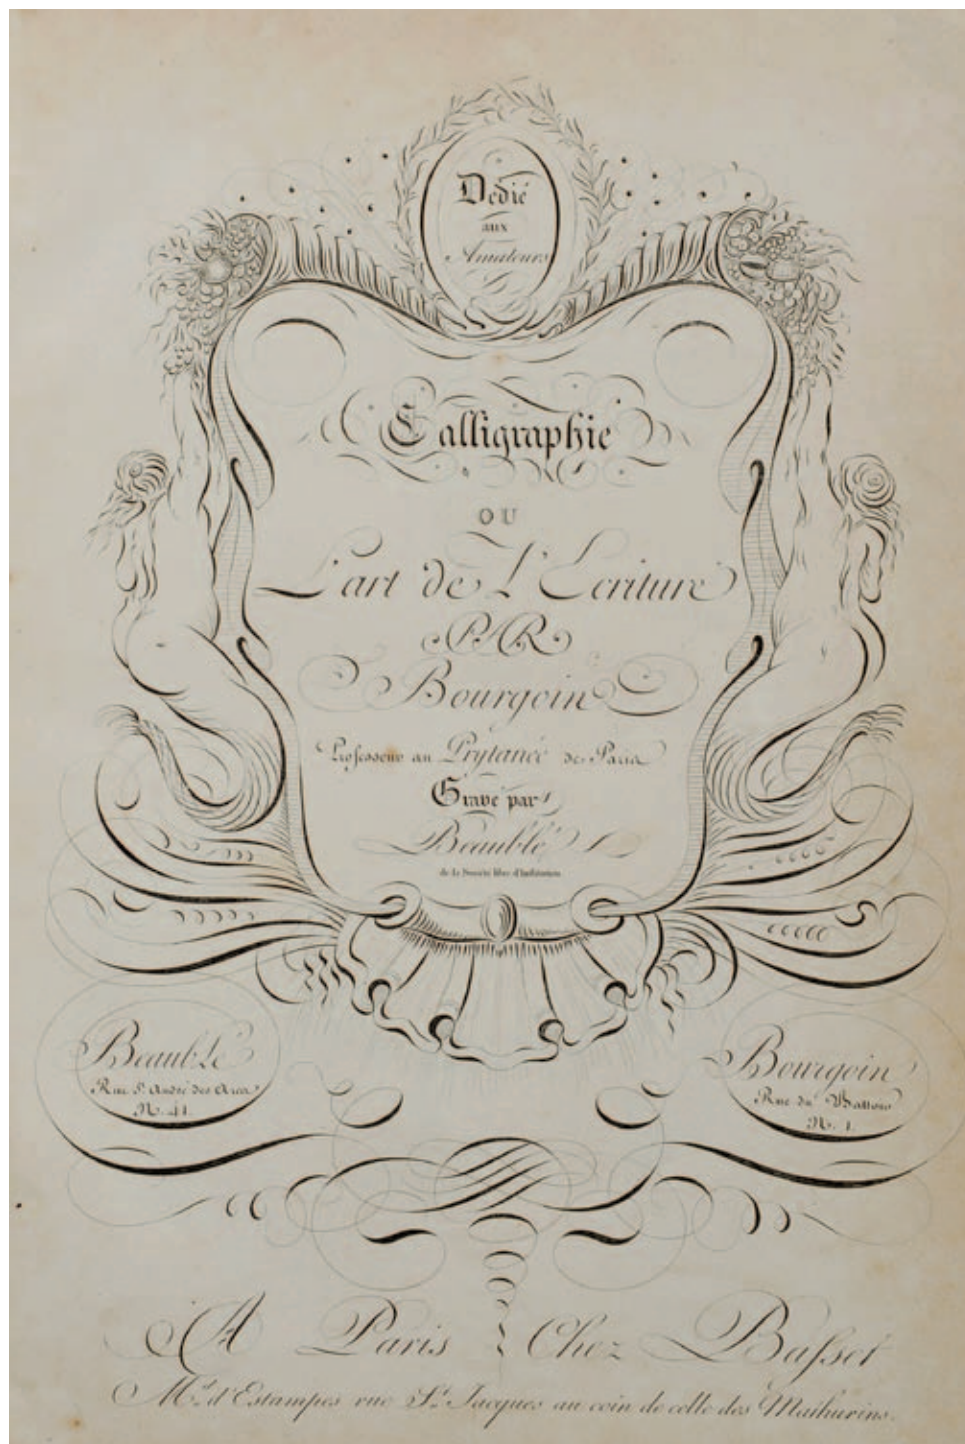 Dédié
aux
Amateurs
Calligraphie
OU
L'art de L'Ecriture
PAR
Bourgoin
Professeur au Prytanée de Paris
Gravé par
Beaublé
de la Société libre d'Institution
Beaublé
Rue St. André des Arcs
No. 41.
Bourgoin
Rue du Battoir
No. 1.
A Paris Chez Basset
Md. d'Estampes rue St. Jacques au coin de celle des Mathurins.